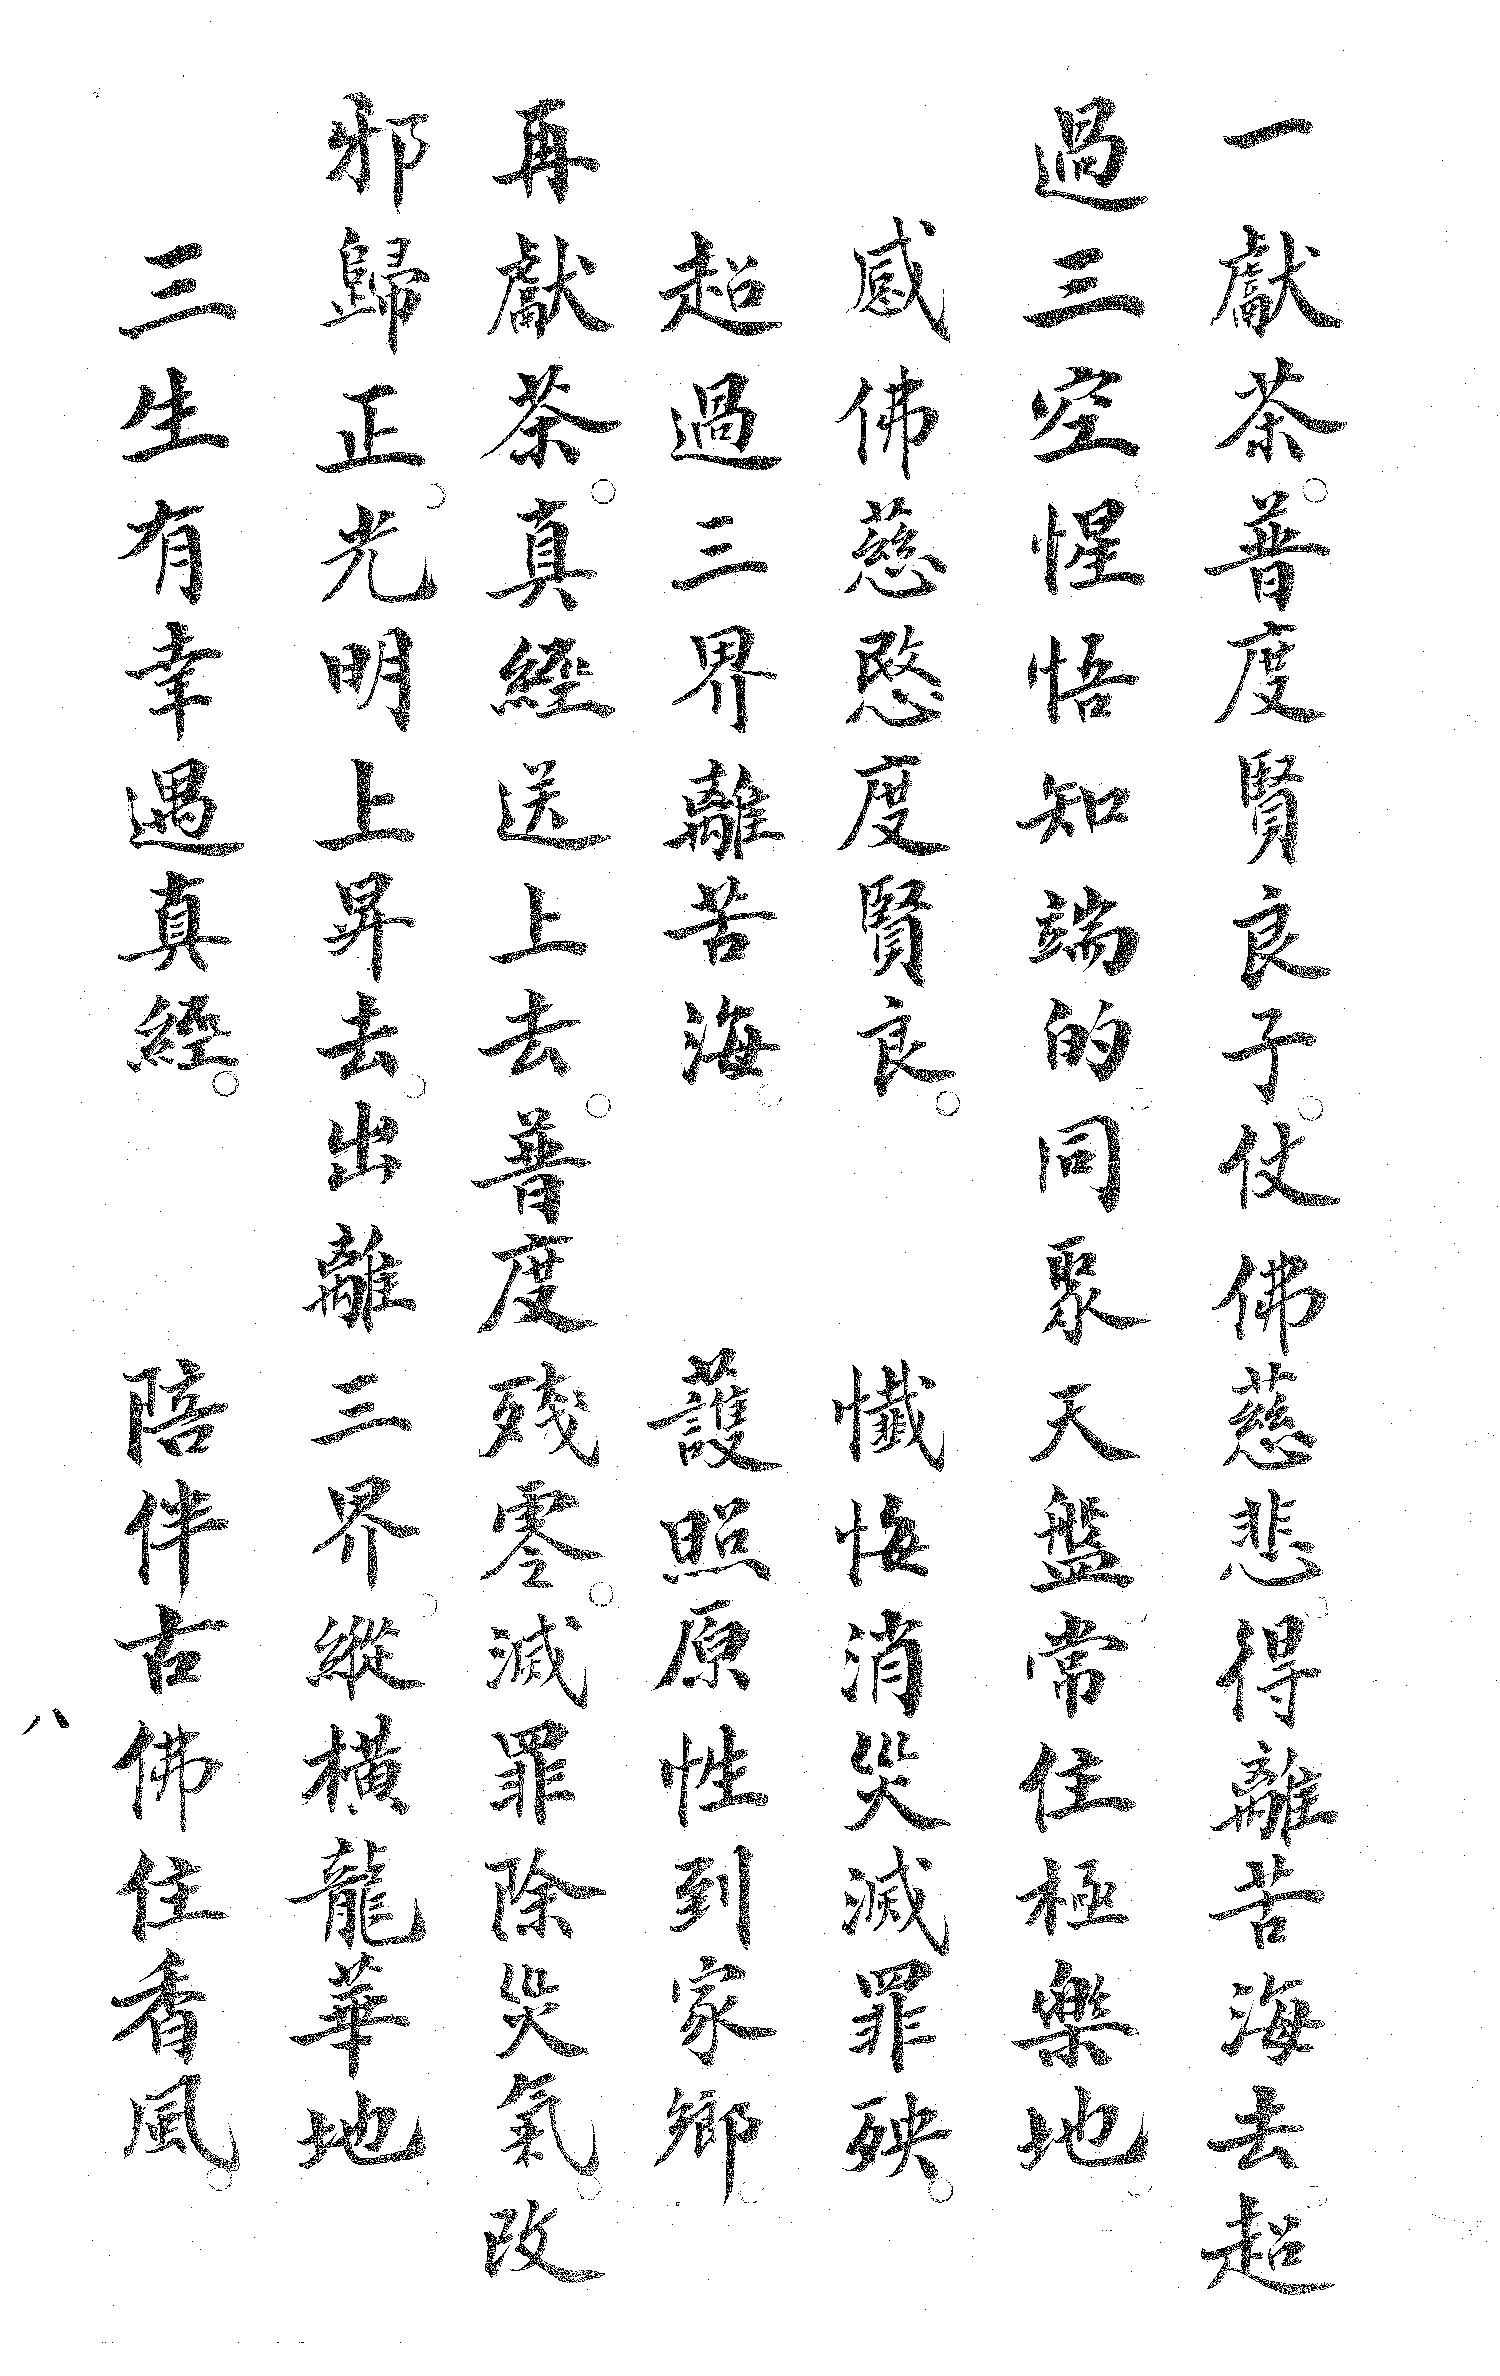 一獻茶。普度賢良子。仗佛慈悲。得離苦海去。超
過三空。惺悟知端的。同聚天盤。常住極樂地。
感佛慈愍度賢良。　懺悔消災滅罪殃。
超過三界離苦海。　護照原性到家鄉。
再獻茶。真經送上去。普度殘零。滅罪除災氣。改
邪歸正。光明上昇去。出離三界。縱橫龍華地。
三生有幸遇真經。　陪伴古佛住香風。
八